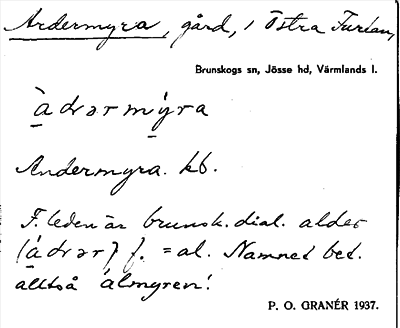 Ardermyra, gård, i Östra Furtan,
Brunskogs sn, Jösse hd, Värmlands l.
àdrərmýra
Andermyra. kb.
F. leden är brunsk. dial. alder
(ádrər) f. = al. Namnet bet.
alltså álmyren!
P. O. GRANÉR 1937.